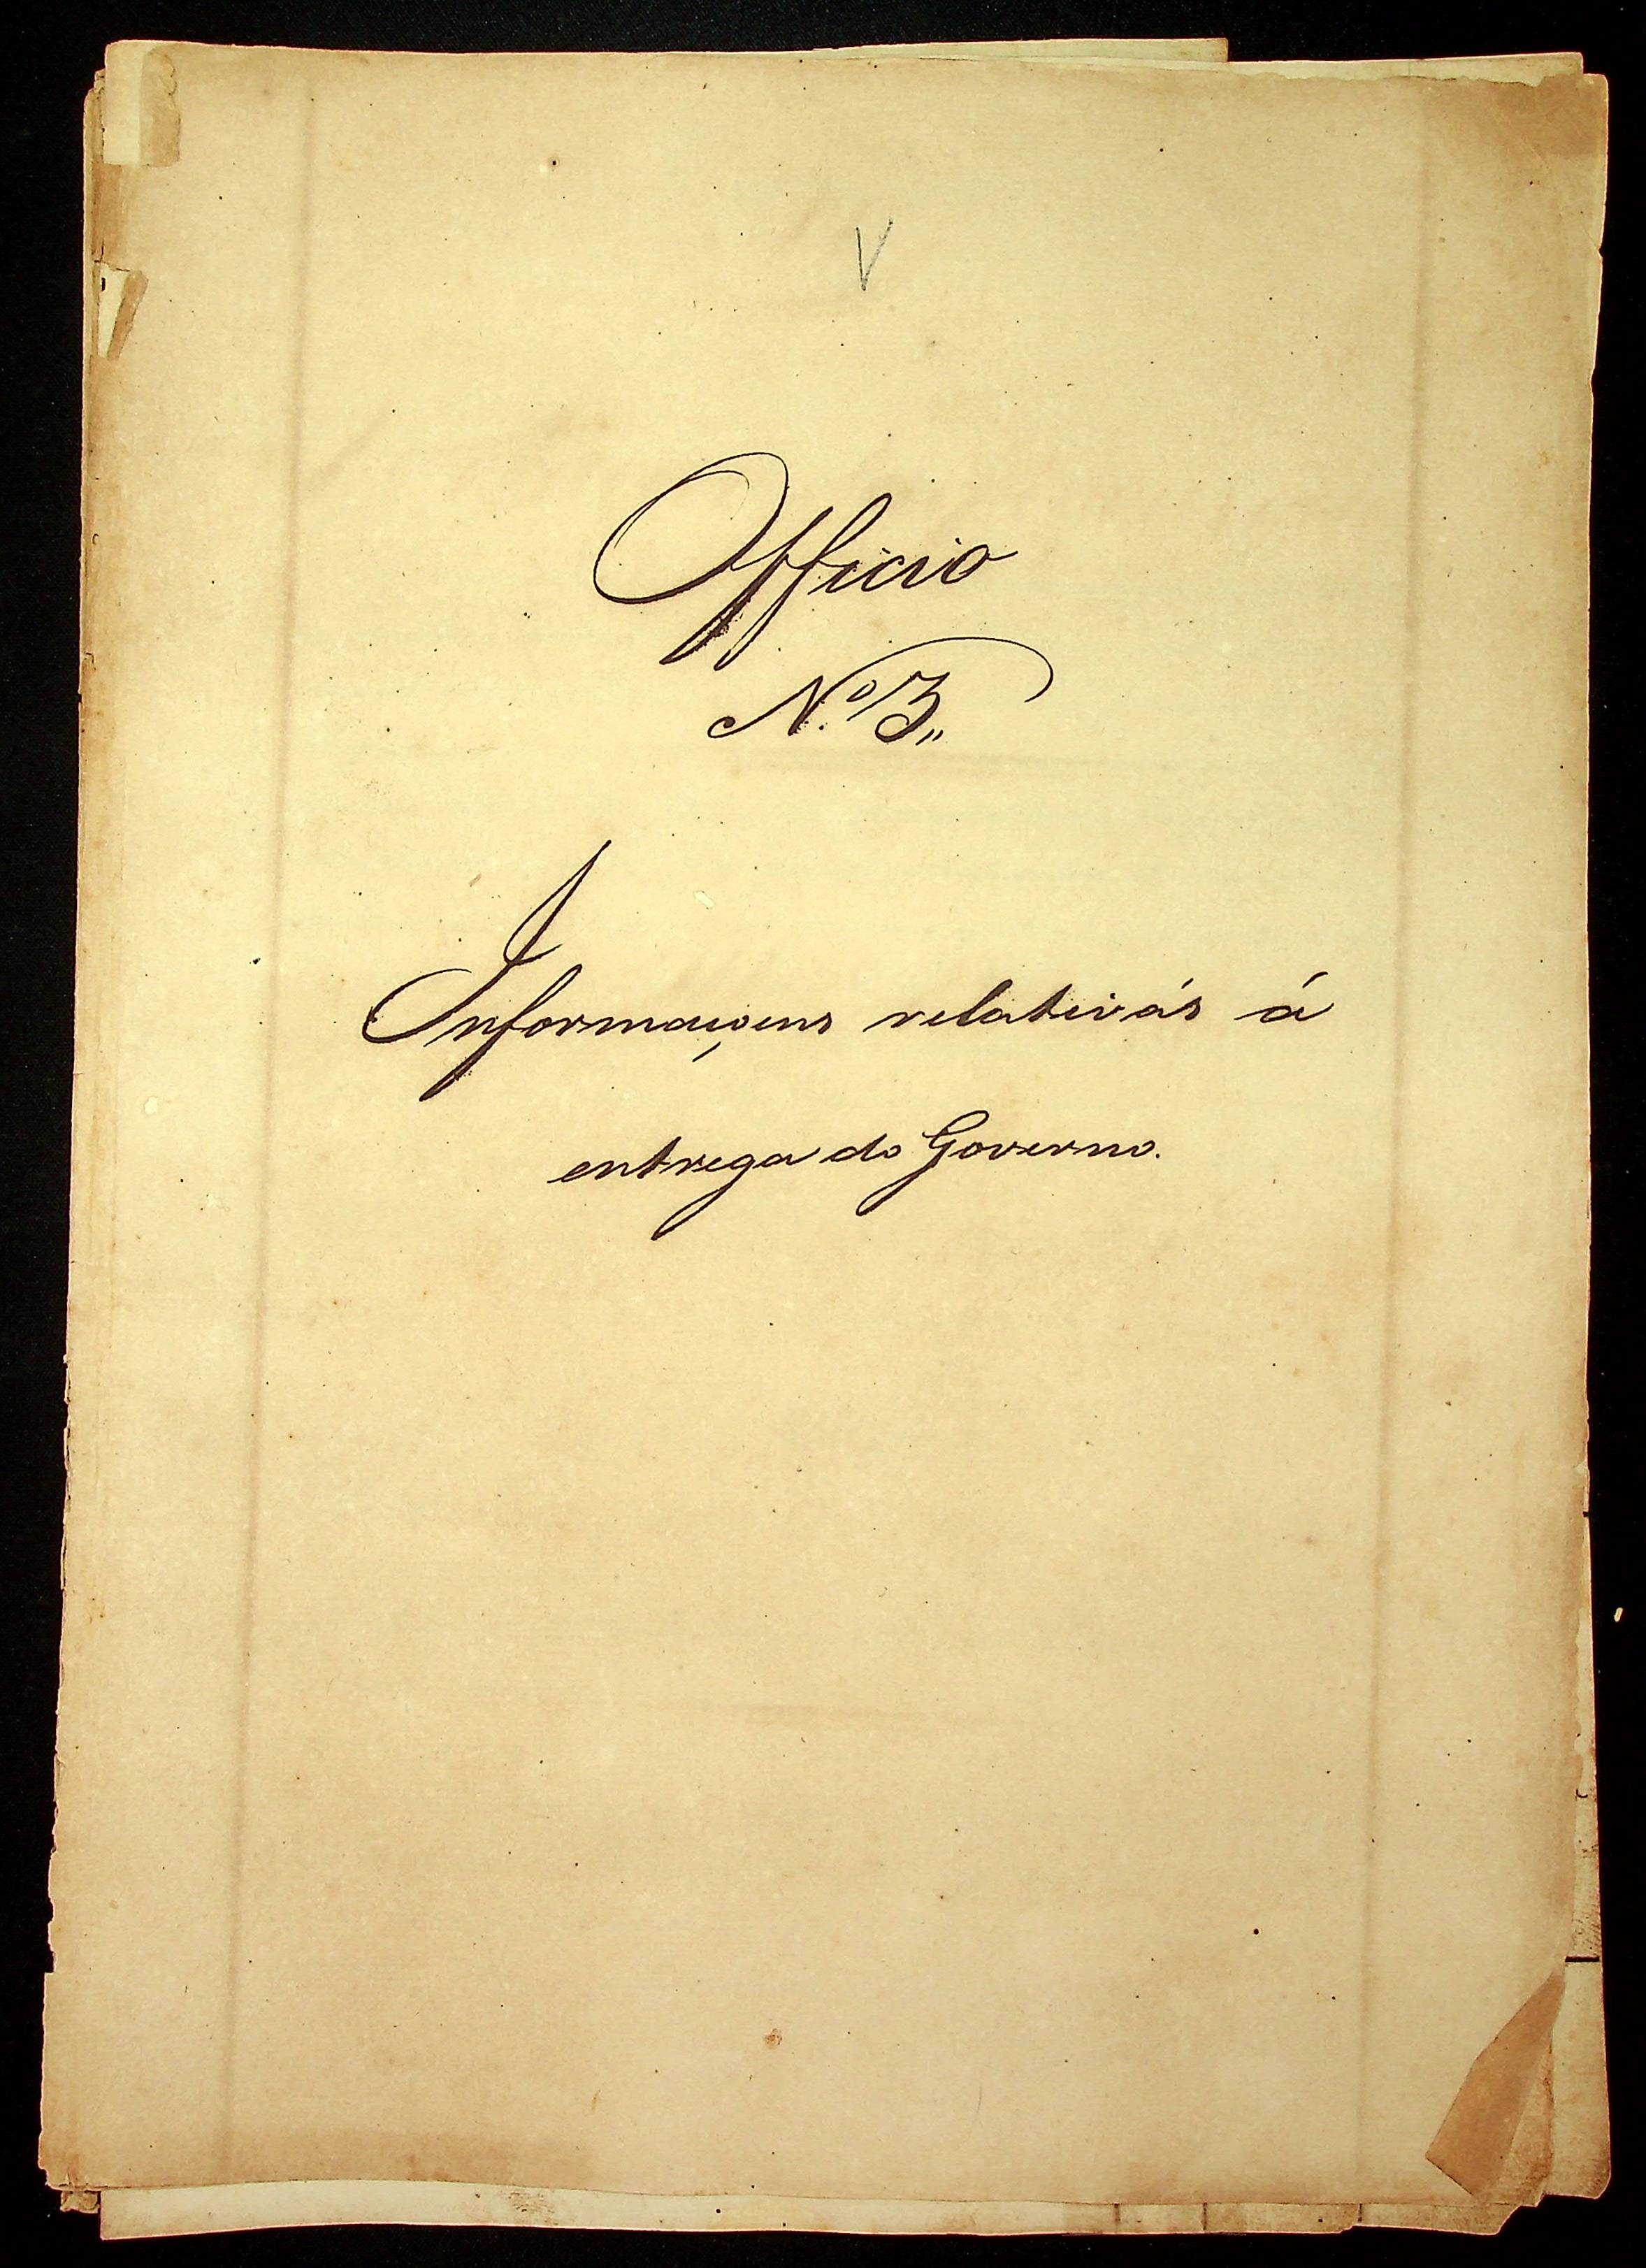 V
Officio
N.º 3„
Informaçoens relativás á
entrega do Governo.